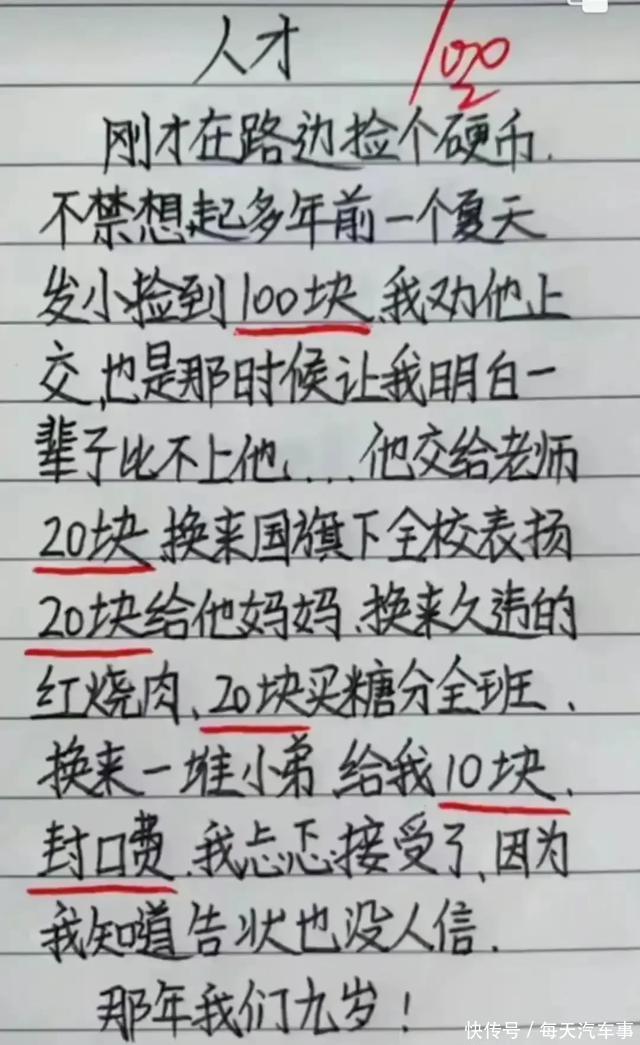 人才
100
刚才在路边捡个硬币.
不禁想起多年前一个夏天
发小捡到100块,我劝他上
交,也是那时候让我明白一
辈子比不上他....他交给老师
20块换来国旗下全校表扬
20块给他妈妈、换来久违的
红烧肉、20块买糖分全班、
换来一堆小弟 给我10块、
封口费、我忐忑接受了,因为
我知道告状也没人信.
那年我们九岁!
快传号／每天汽车事